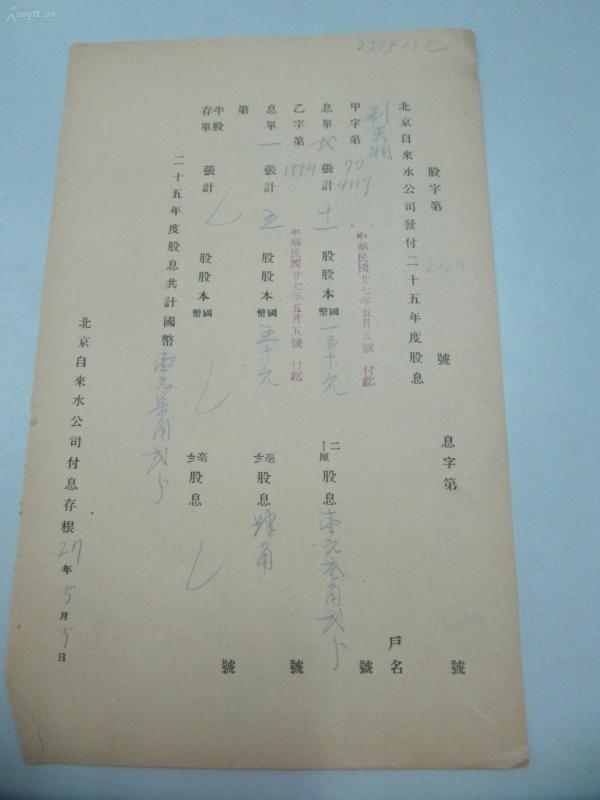 Kongfz.cn
股字第 號 息字第 號
北京自來水公司發付二十五年度股息 戶名
甲字第 70 4117 號
息單 張計 十一 股股本國幣 一百十元 二厘 股息 壹元叁角貳分
中華民國廿七年五月五號 付訖
乙字第 1554 號
息單 一 張計 五 股股本國幣 五十元 毫 股息 肆角
中華民國廿七年五月五號 付訖
第 號
半股存單 張計 股股本國幣 毫 股息
二十五年度股息共計國幣 壹元柒角貳分
北京自來水公司付息存根 27 年 5 月 5 日